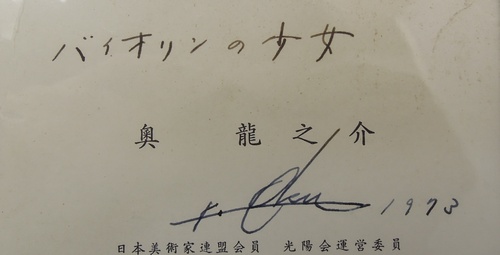 バイオリンの少女
奥 龍之介
r. Oku 1973
日本美術家連盟会員 光陽会運営委員